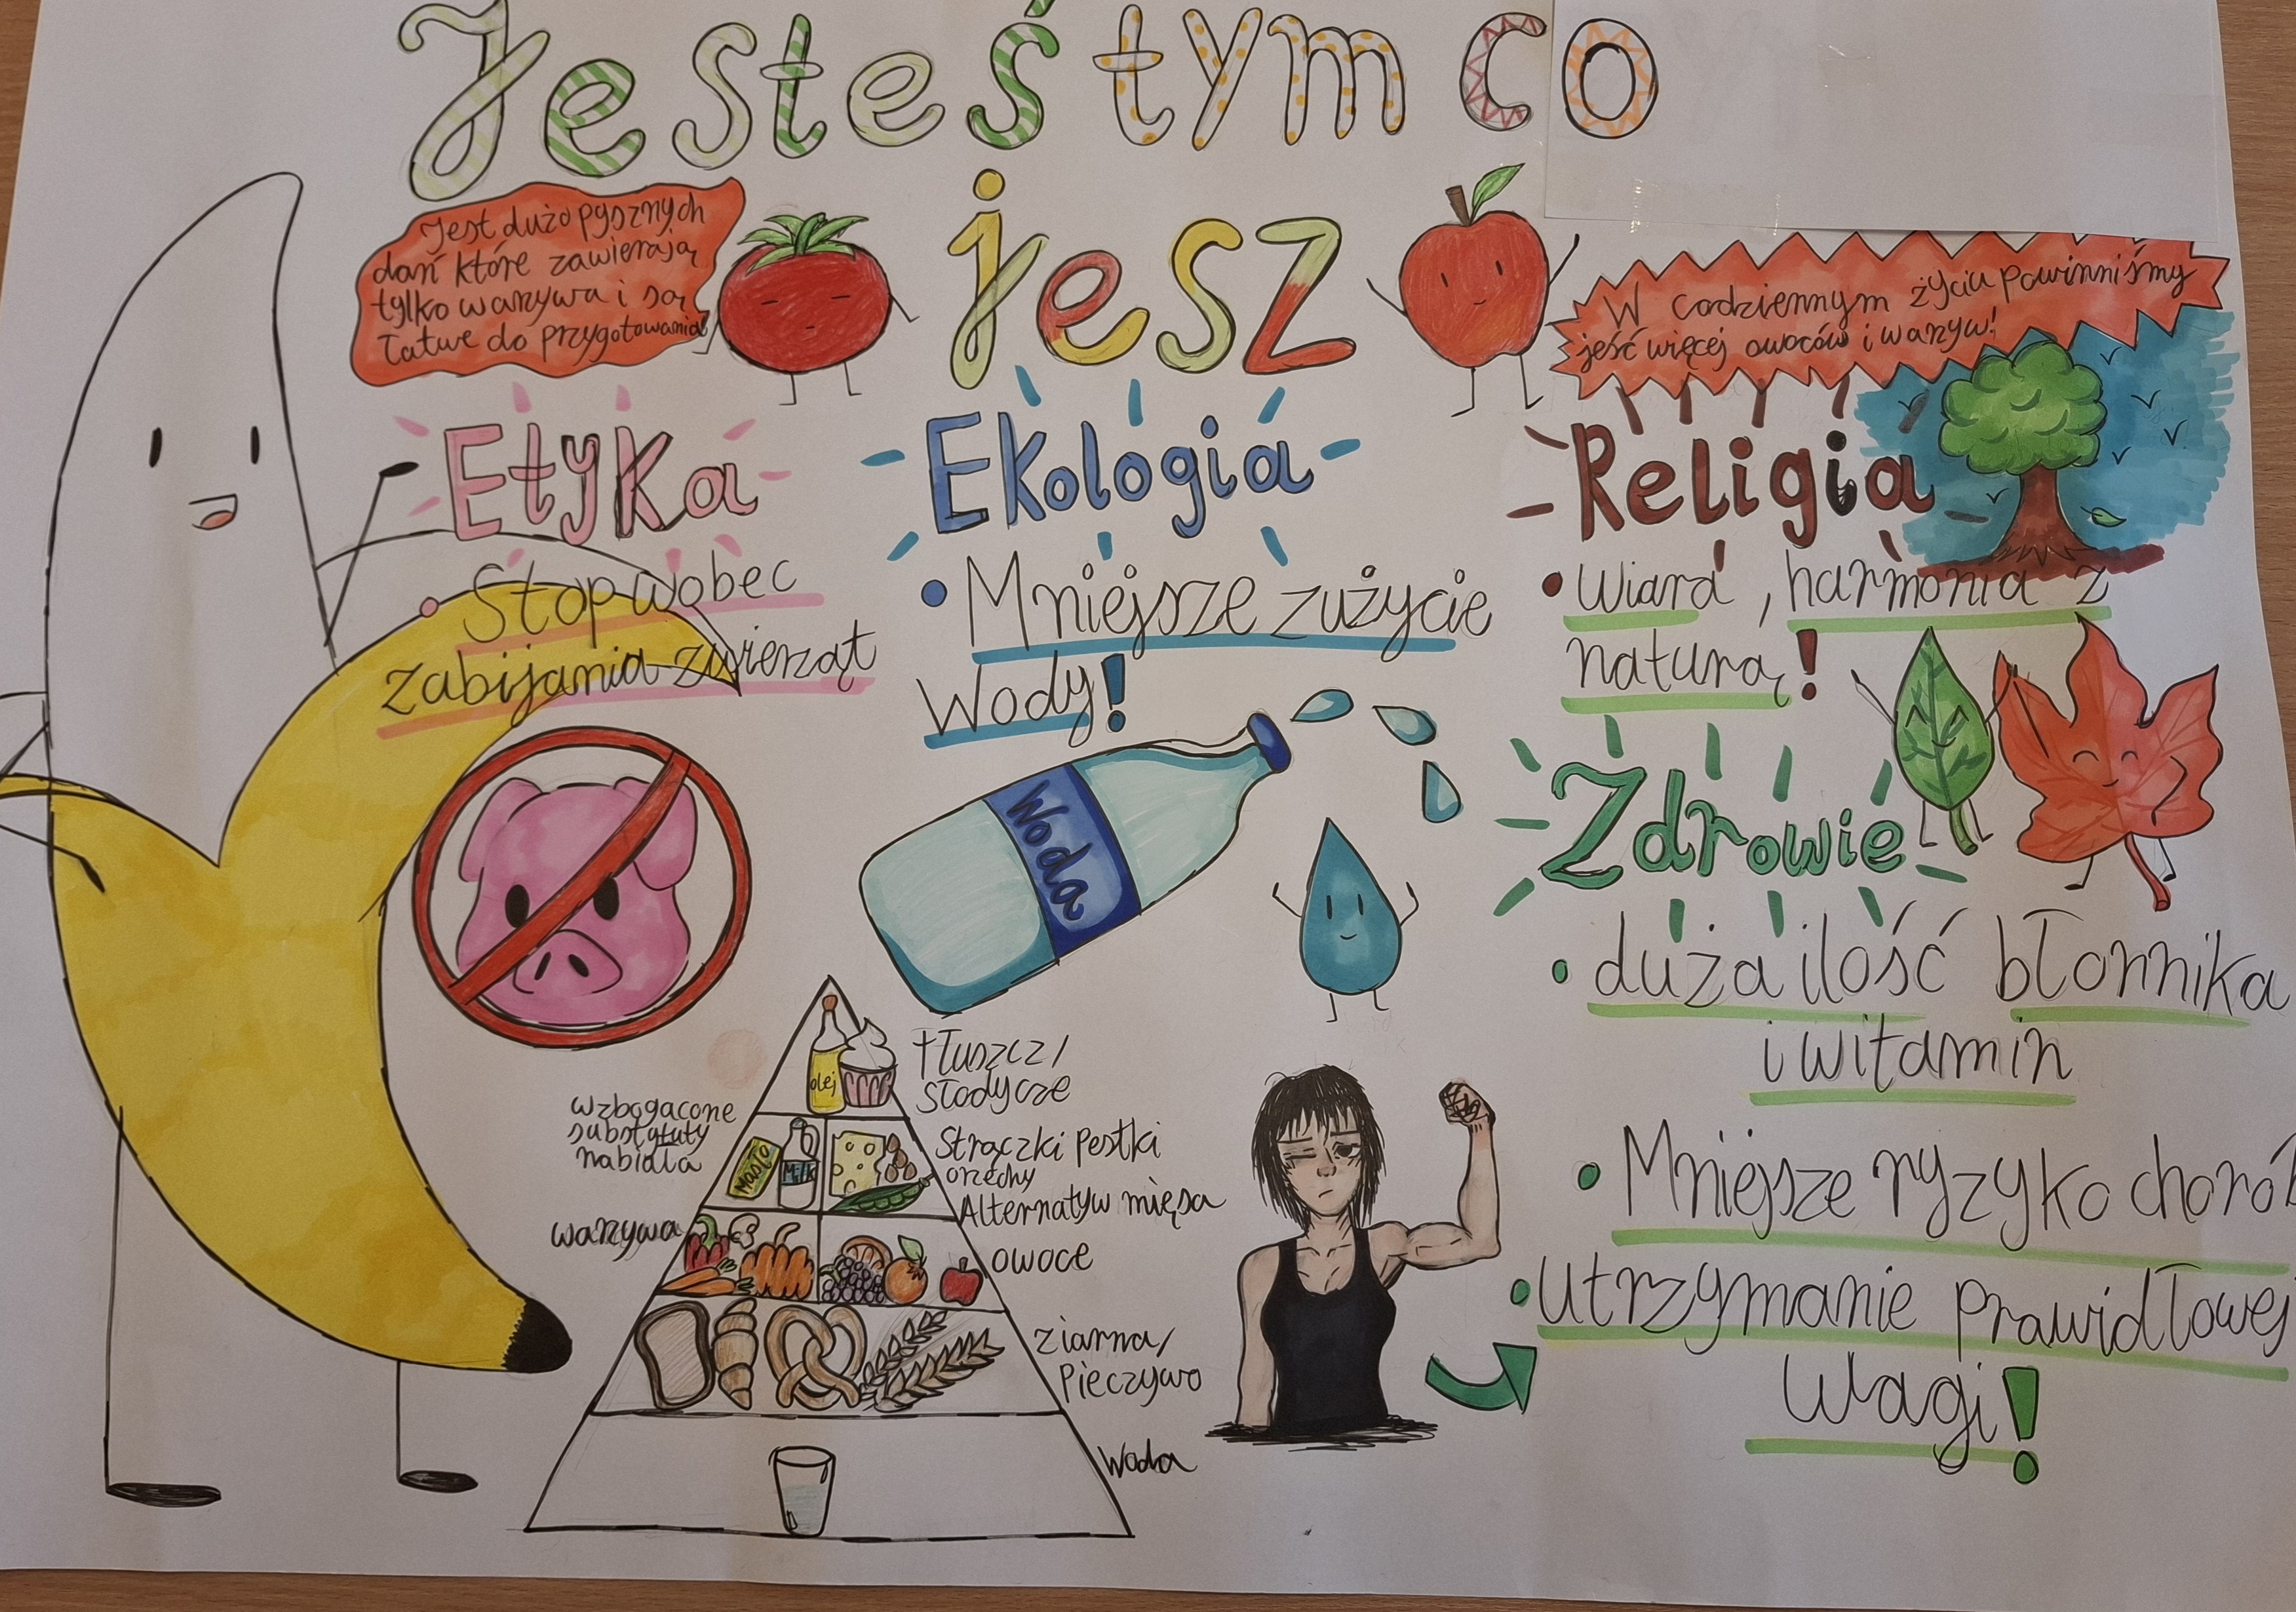 Jesteś tym co
jesz
Jest dużo pysznych
dań które zawierają
tylko warzywa i są
łatwe do przygotowania!
W codziennym życiu powinniśmy
jeść więcej owoców i warzyw!
Etyka
• Stop wobec
zabijania zwierząt
Ekologia
• Mniejsze zużycie
Wody!
Woda
Religia
• Wiara, harmonia z
naturą!
Zdrowie
• duża ilość błonnika
i witamin
• Mniejsze ryzyko chorób
• utrzymanie prawidłowej
wagi!
olej
tłuszcz/
słodycze
wzbogacone
substytuty
nabiału
Masło
Milk
Strączki pestki
orzechy
Alternatyw mięsa
warzywa
owoce
ziarna/
Pieczywo
Woda